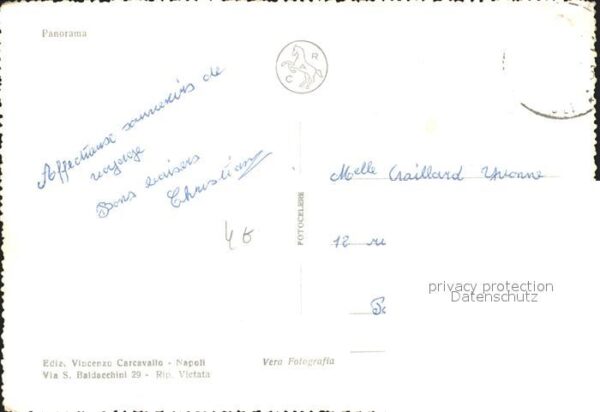 Panorama
C R
Affectueux souvenirs de
voyage
Bons baisers
Christian
4 6
Melle Craillard Yvonne
12 ru
FOTOCELERE
privacy protection
Datenschutz
Ediz. Vincenzo Carcavallo - Napoli
Via S. Baldacchini 29 - Rip. Vietata
Vera Fotografia